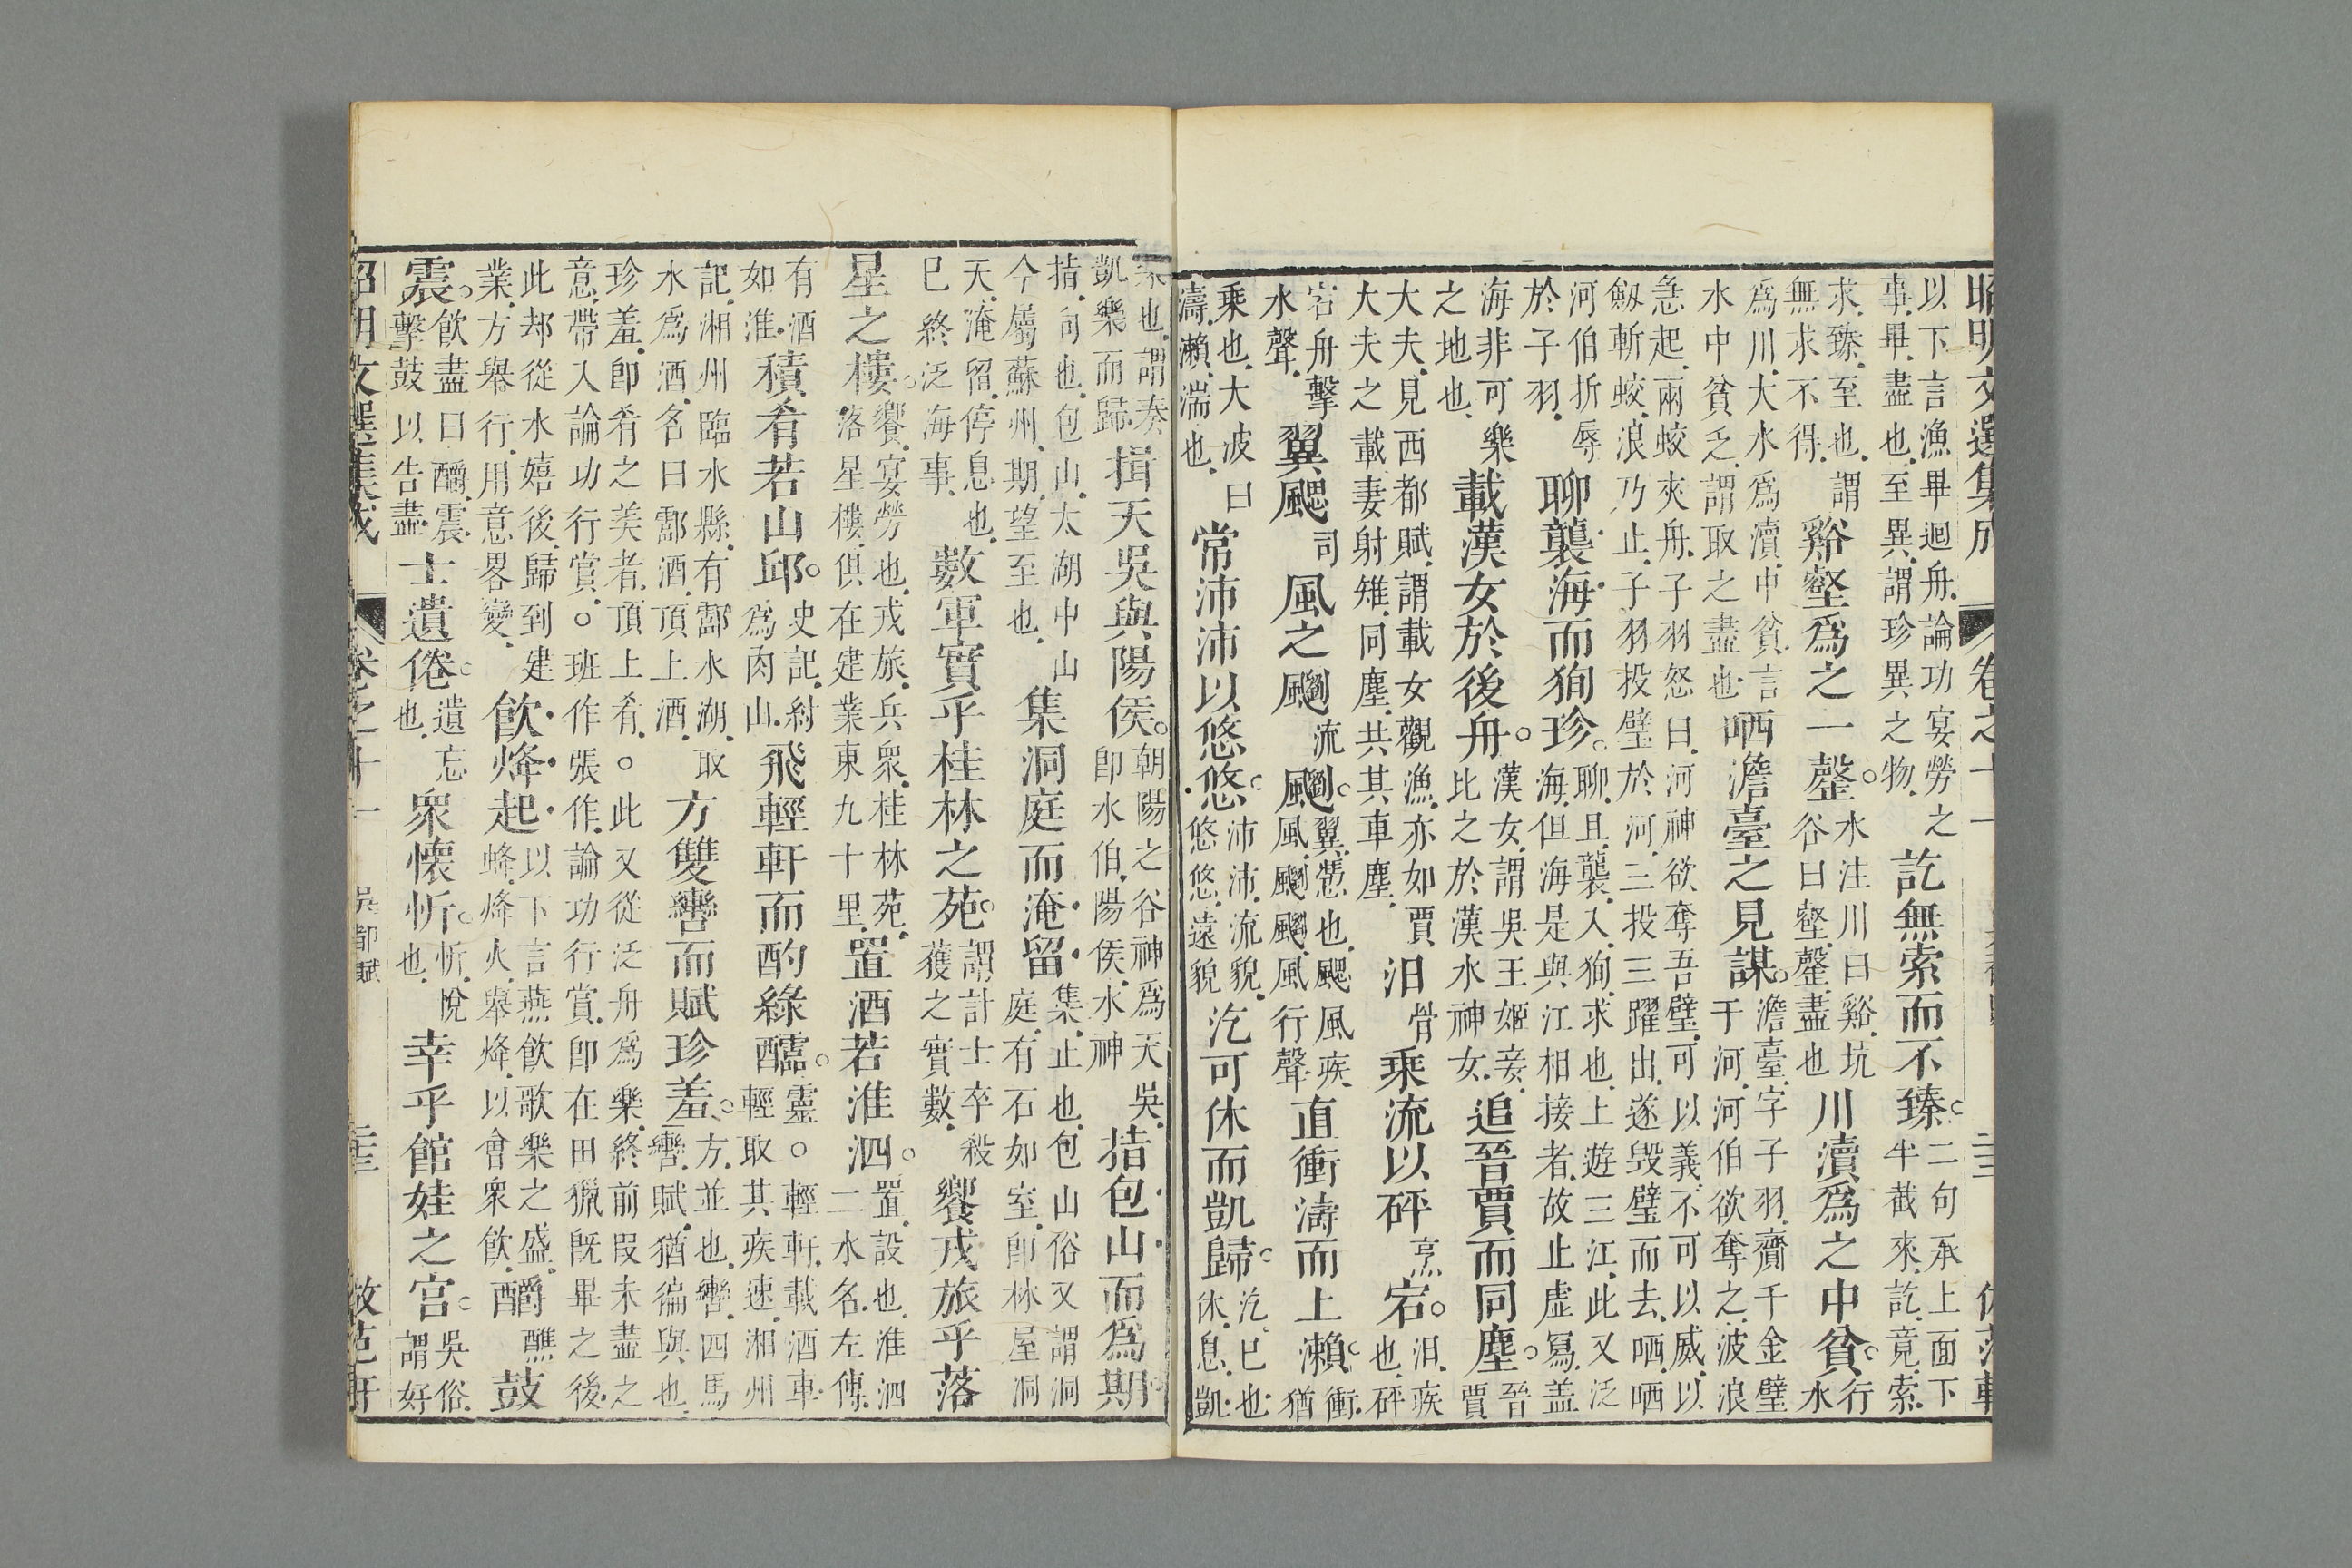 昭明文選集成 卷之十一
以下言漁畢迴舟論功宴勞之
事畢盡也至異謂珍異之物
訖無索而不臻
二句承上面下
半截來訖竟索
求臻至也謂
無求不得
谿壑爲之一罄
水注川曰谿坑
谷曰壑罄盡也
川瀆爲之中貧
行
水
爲川大水爲瀆中貧言
水中貧乏謂取之盡也
哂澹臺之見謀
澹臺字子羽齎千金璧
于河河伯欲奪之波浪
急起兩蛟夾舟子羽怒曰河神欲奪吾璧可以義不可以威以
劔斬蛟浪乃止子羽投璧於河三投三躍出遂毁璧而去哂哂
河伯折辱
於子羽
聊襲海而狥珍
聊且襲入狥求也上遊三江此又泛
海但海是與江相接者故止虛寫盖
海非可樂
之地也
載漢女於後舟
漢女謂吳王姬妾
比之於漢水神女
追晉賈而同塵
晉
賈
大夫見西都賦謂載女觀漁亦如賈
大夫之載妻射雉同塵共其車塵
汩
骨
乘流以砰
烹
宕
汩疾
也砰
宕舟擊
水聲
翼颸
司
風之飀
流
飀
翼也颸風疾
風飀飀風行聲
直衝濤而上瀨
衝
猶
乘也大波曰
濤瀨湍也
常沛沛以悠悠
沛沛流貌
悠悠遠貌
汔可休而凱歸
汔已也
休息凱
樂也謂奏
凱樂而歸
揖天吳與陽侯
朝陽之谷神爲天吳
卽水伯陽侯水神
指包山而爲期
指向也包山太湖中山
今屬蘇州期望至也
集洞庭而淹留
集止也包山俗又謂洞
庭有石如室卽林屋洞
天淹留停息也
已終泛海事
數軍實乎桂林之苑
謂計士卒殺
獲之實數
饗戎旅乎落
星之樓
饗宴勞也戎旅兵衆桂林苑
落星樓俱在建業東九十里
置酒若淮泗
置設也淮泗
二水名左傳
有酒
如淮
積肴若山邱
史記紂
爲肉山
飛輕軒而酌綠醽
靈○輕軒載酒車
輕取其疾速湘州
記湘州臨水縣有酃水湖取
水爲酒名曰酃酒頂上酒
方雙轡而賦珍羞
方並也轡四馬
轡賦猶徧與也
珍羞卽肴之美者頂上肴○此又從泛舟爲樂終前叚未盡之
意帶入論功行賞○班作張作論功行賞卽在田獵旣畢之後
此却從水嬉後歸到建
業方舉行用意畧變
飲烽起
以下言燕飲歌樂之盛
烽烽火舉烽以會衆飲
釂
醮
鼓
震
飲盡曰釂震
擊鼓以告盡
士遺倦
遺忘
也
衆懷忻
忻悅
也
幸乎館娃之宮
吳俗
謂好
昭明文選集成 卷之十一 吳都賦